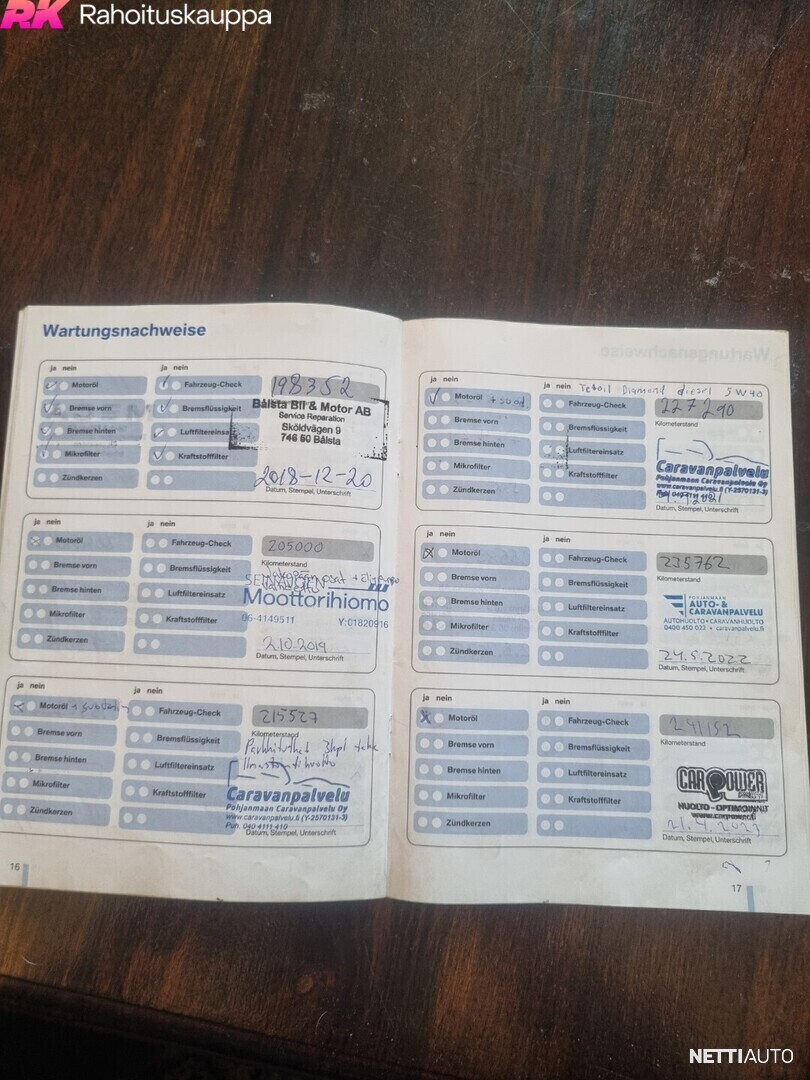 RK Rahoituskauppa
Wartungsnachweise
ja nein
ja nein
Motoröl
Bremse vorn
Bremse hinten
Mikrofilter
Zündkerzen
Fahrzeug-Check
Bremsflüssigkeit
Luftfiltereinsatz
Kraftstofffilter
198352
Bålsta Bil & Motor AB
Service Reparation
Sköldvägen 9
746 50 Bålsta
2018-12-20
Datum, Stempel, Unterschrift
ja nein
ja nein
Motoröl
Bremse vorn
Bremse hinten
Mikrofilter
Zündkerzen
Fahrzeug-Check
Bremsflüssigkeit
Luftfiltereinsatz
Kraftstofffilter
205000
Kilometerstand
Moottorihiomo
06-4149511 Y:01820916
2.10.2019
Datum, Stempel, Unterschrift
ja nein
ja nein
Motoröl
Bremse vorn
Bremse hinten
Mikrofilter
Zündkerzen
Fahrzeug-Check
Bremsflüssigkeit
Luftfiltereinsatz
Kraftstofffilter
215527
Kilometerstand
Caravanpalvelu
Pohjanmaan Caravanpalvelu Oy
www.caravanpalvelu.fi (Y-2570131-3)
Puh. 040 4111 410
Datum, Stempel, Unterschrift
16
Wartungsnachweise
ja nein
ja nein
diesel 5W40
Motoröl + suod.
Bremse vorn
Bremse hinten
Mikrofilter
Zündkerzen
Fahrzeug-Check
Bremsflüssigkeit
Luftfiltereinsatz
Kraftstofffilter
227290
Kilometerstand
Caravanpalvelu
Pohjanmaan Caravanpalvelu Oy
www.caravanpalvelu.fi (Y-2570131-3)
Datum, Stempel, Unterschrift
ja nein
ja nein
Motoröl
Bremse vorn
Bremse hinten
Mikrofilter
Zündkerzen
Fahrzeug-Check
Bremsflüssigkeit
Luftfiltereinsatz
Kraftstofffilter
235762
Kilometerstand
POHJANMAAN
AUTO- &
CARAVANPALVELU
AUTOHUOLTO • CARAVANHUOLTO
0400 450 022 • caravanpalvelu.fi
24.5.2022
Datum, Stempel, Unterschrift
ja nein
ja nein
Motoröl
Bremse vorn
Bremse hinten
Mikrofilter
Zündkerzen
Fahrzeug-Check
Bremsflüssigkeit
Luftfiltereinsatz
Kraftstofffilter
241152
Kilometerstand
CARPOWER
HUOLTO - OPTIMOINNIT
www.carpower.fi
21.4.2023
Datum, Stempel, Unterschrift
17
NETTIAUTO